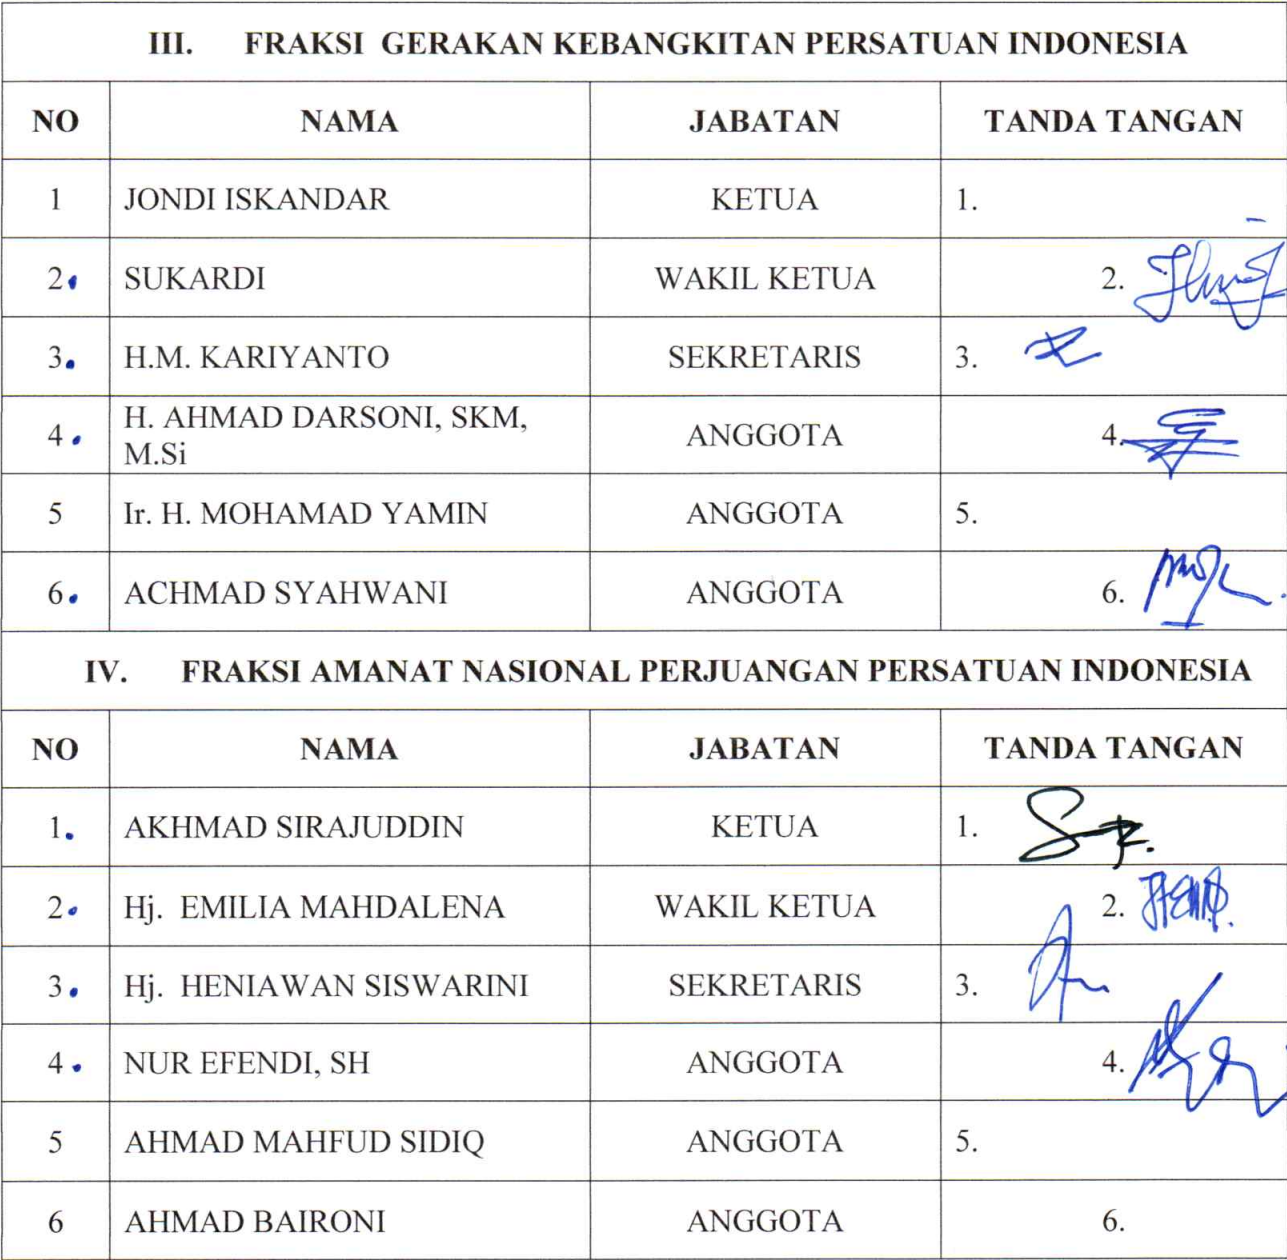 III. FRAKSI GERAKAN KEBANGKITAN PERSATUAN INDONESIA
NO NAMA JABATAN TANDA TANGAN
1 JONDI ISKANDAR KETUA 1.
2. SUKARDI WAKIL KETUA 2.
3. H.M. KARIYANTO SEKRETARIS 3.
4. H. AHMAD DARSONI, SKM,
M.Si ANGGOTA 4.
5 Ir. H. MOHAMAD YAMIN ANGGOTA 5.
6. ACHMAD SYAHWANI ANGGOTA 6.
IV. FRAKSI AMANAT NASIONAL PERJUANGAN PERSATUAN INDONESIA
NO NAMA JABATAN TANDA TANGAN
1. AKHMAD SIRAJUDDIN KETUA 1.
2. Hj. EMILIA MAHDALENA WAKIL KETUA 2.
3. Hj. HENIAWAN SISWARINI SEKRETARIS 3.
4. NUR EFENDI, SH ANGGOTA 4.
5 AHMAD MAHFUD SIDIQ ANGGOTA 5.
6 AHMAD BAIRONI ANGGOTA 6.